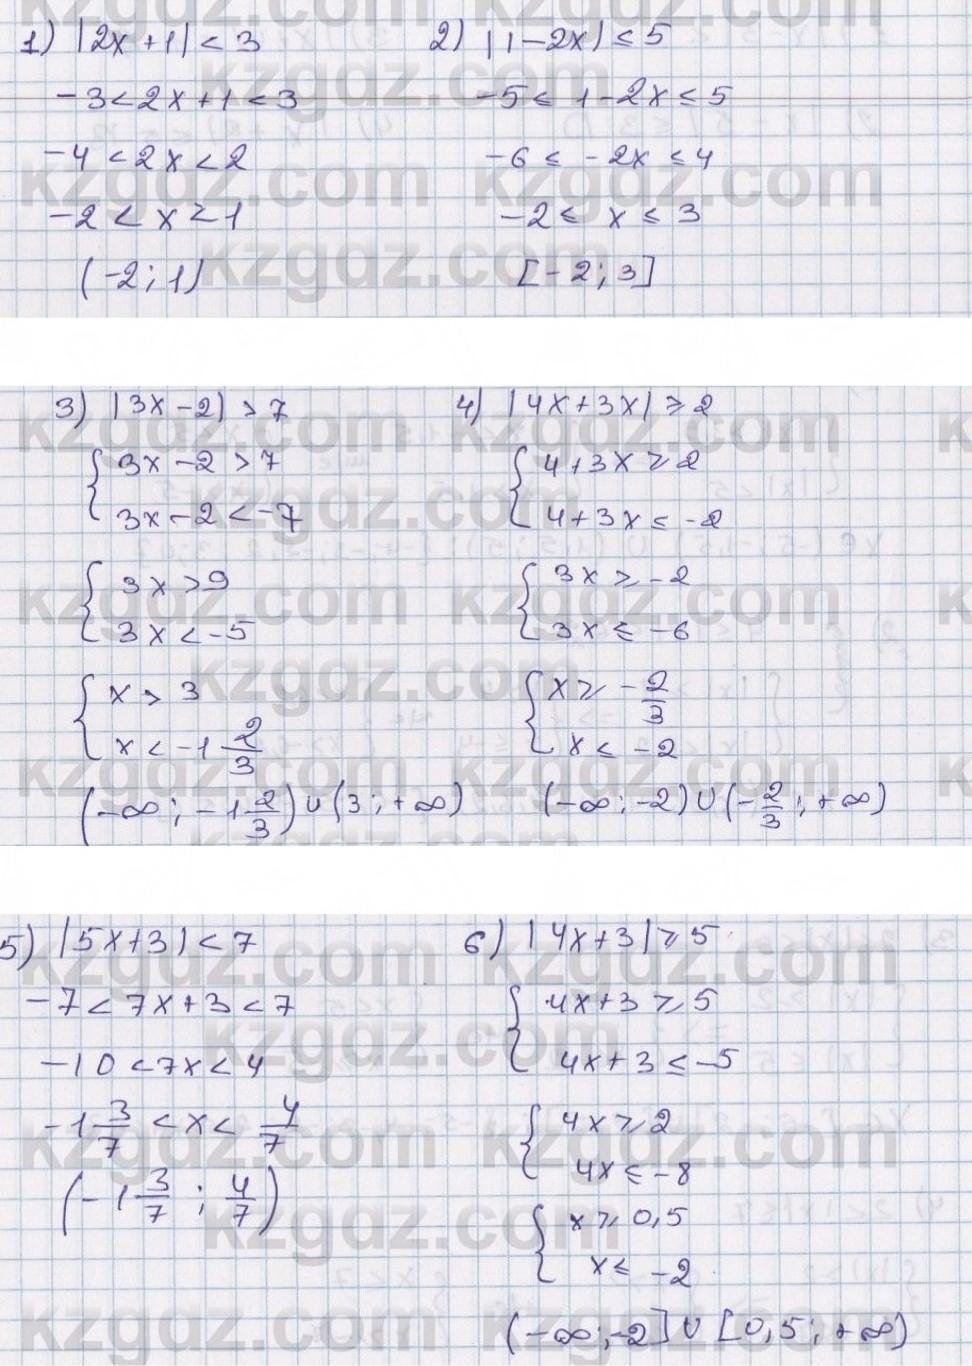 1) |2x+1| < 3
-3 < 2x+1 < 3
-4 < 2x < 2
-2 < x > 1
(-2; 1)
2) |1-2x| ≤ 5
-5 ≤ 1-2x ≤ 5
-6 ≤ -2x ≤ 4
-2 ≤ x ≤ 3
[-2; 3]
3) |3x-2| > 7
{ 3x-2 > 7
3x-2 < -7
{ 3x > 9
3x < -5
{ x > 3
x < -1 2/3
(-∞; -1 2/3) ∪ (3; +∞)
4) |4x+3x| ≥ 2
{ 4+3x ≥ 2
4+3x ≤ -2
{ 3x ≥ -2
3x ≤ -6
{ x ≥ -2/3
x ≤ -2
(-∞; -2) ∪ (-2/3; +∞)
5) |5x+3| < 7
-7 < 7x+3 < 7
-10 < 7x < 4
-1 3/7 < x < 4/7
(-1 3/7; 4/7)
6) |4x+3| ≥ 5
{ 4x+3 ≥ 5
4x+3 ≤ -5
{ 4x ≥ 2
4x ≤ -8
{ x ≥ 0,5
x ≤ -2
(-∞; -2] ∪ [0,5; +∞)
kzgdz.com